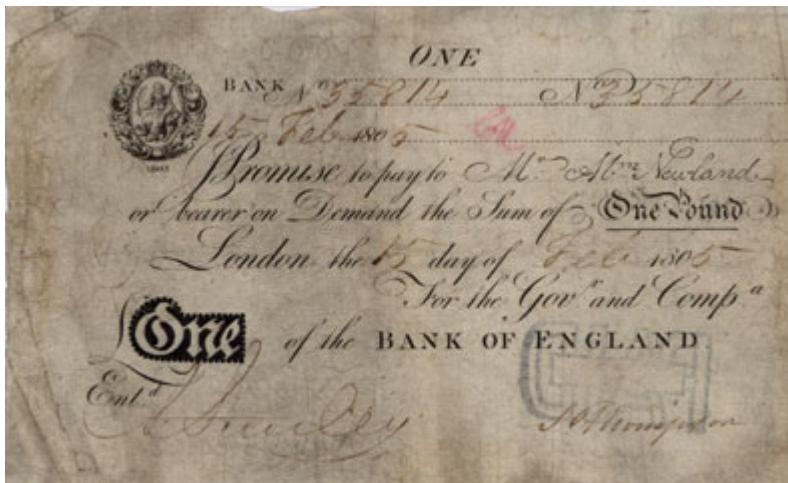 ONE
BANK No 35814 No 35814
15 Feb 1805
I Promise to pay to Mr Abm Newland
or bearer on Demand the Sum of One Pound
London the 15 day of Feb 1805
For the Govr and Compa
One of the BANK OF ENGLAND
Entd